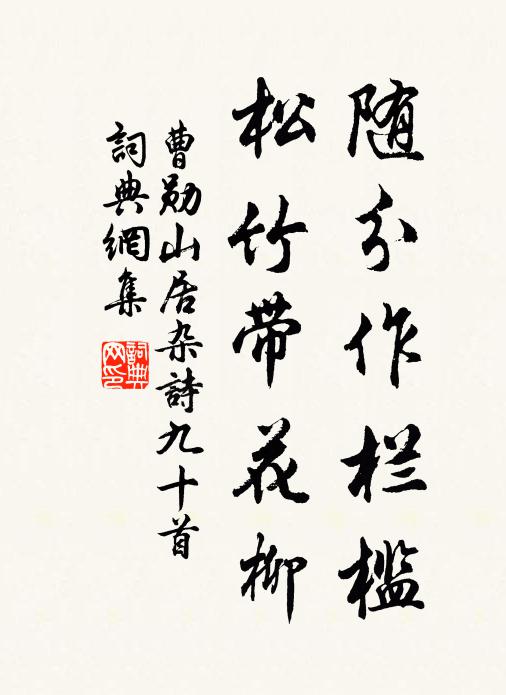 随分作栏槛
松竹带花柳
曹勛山居杂詩九十首
詞典網集
詞典網印